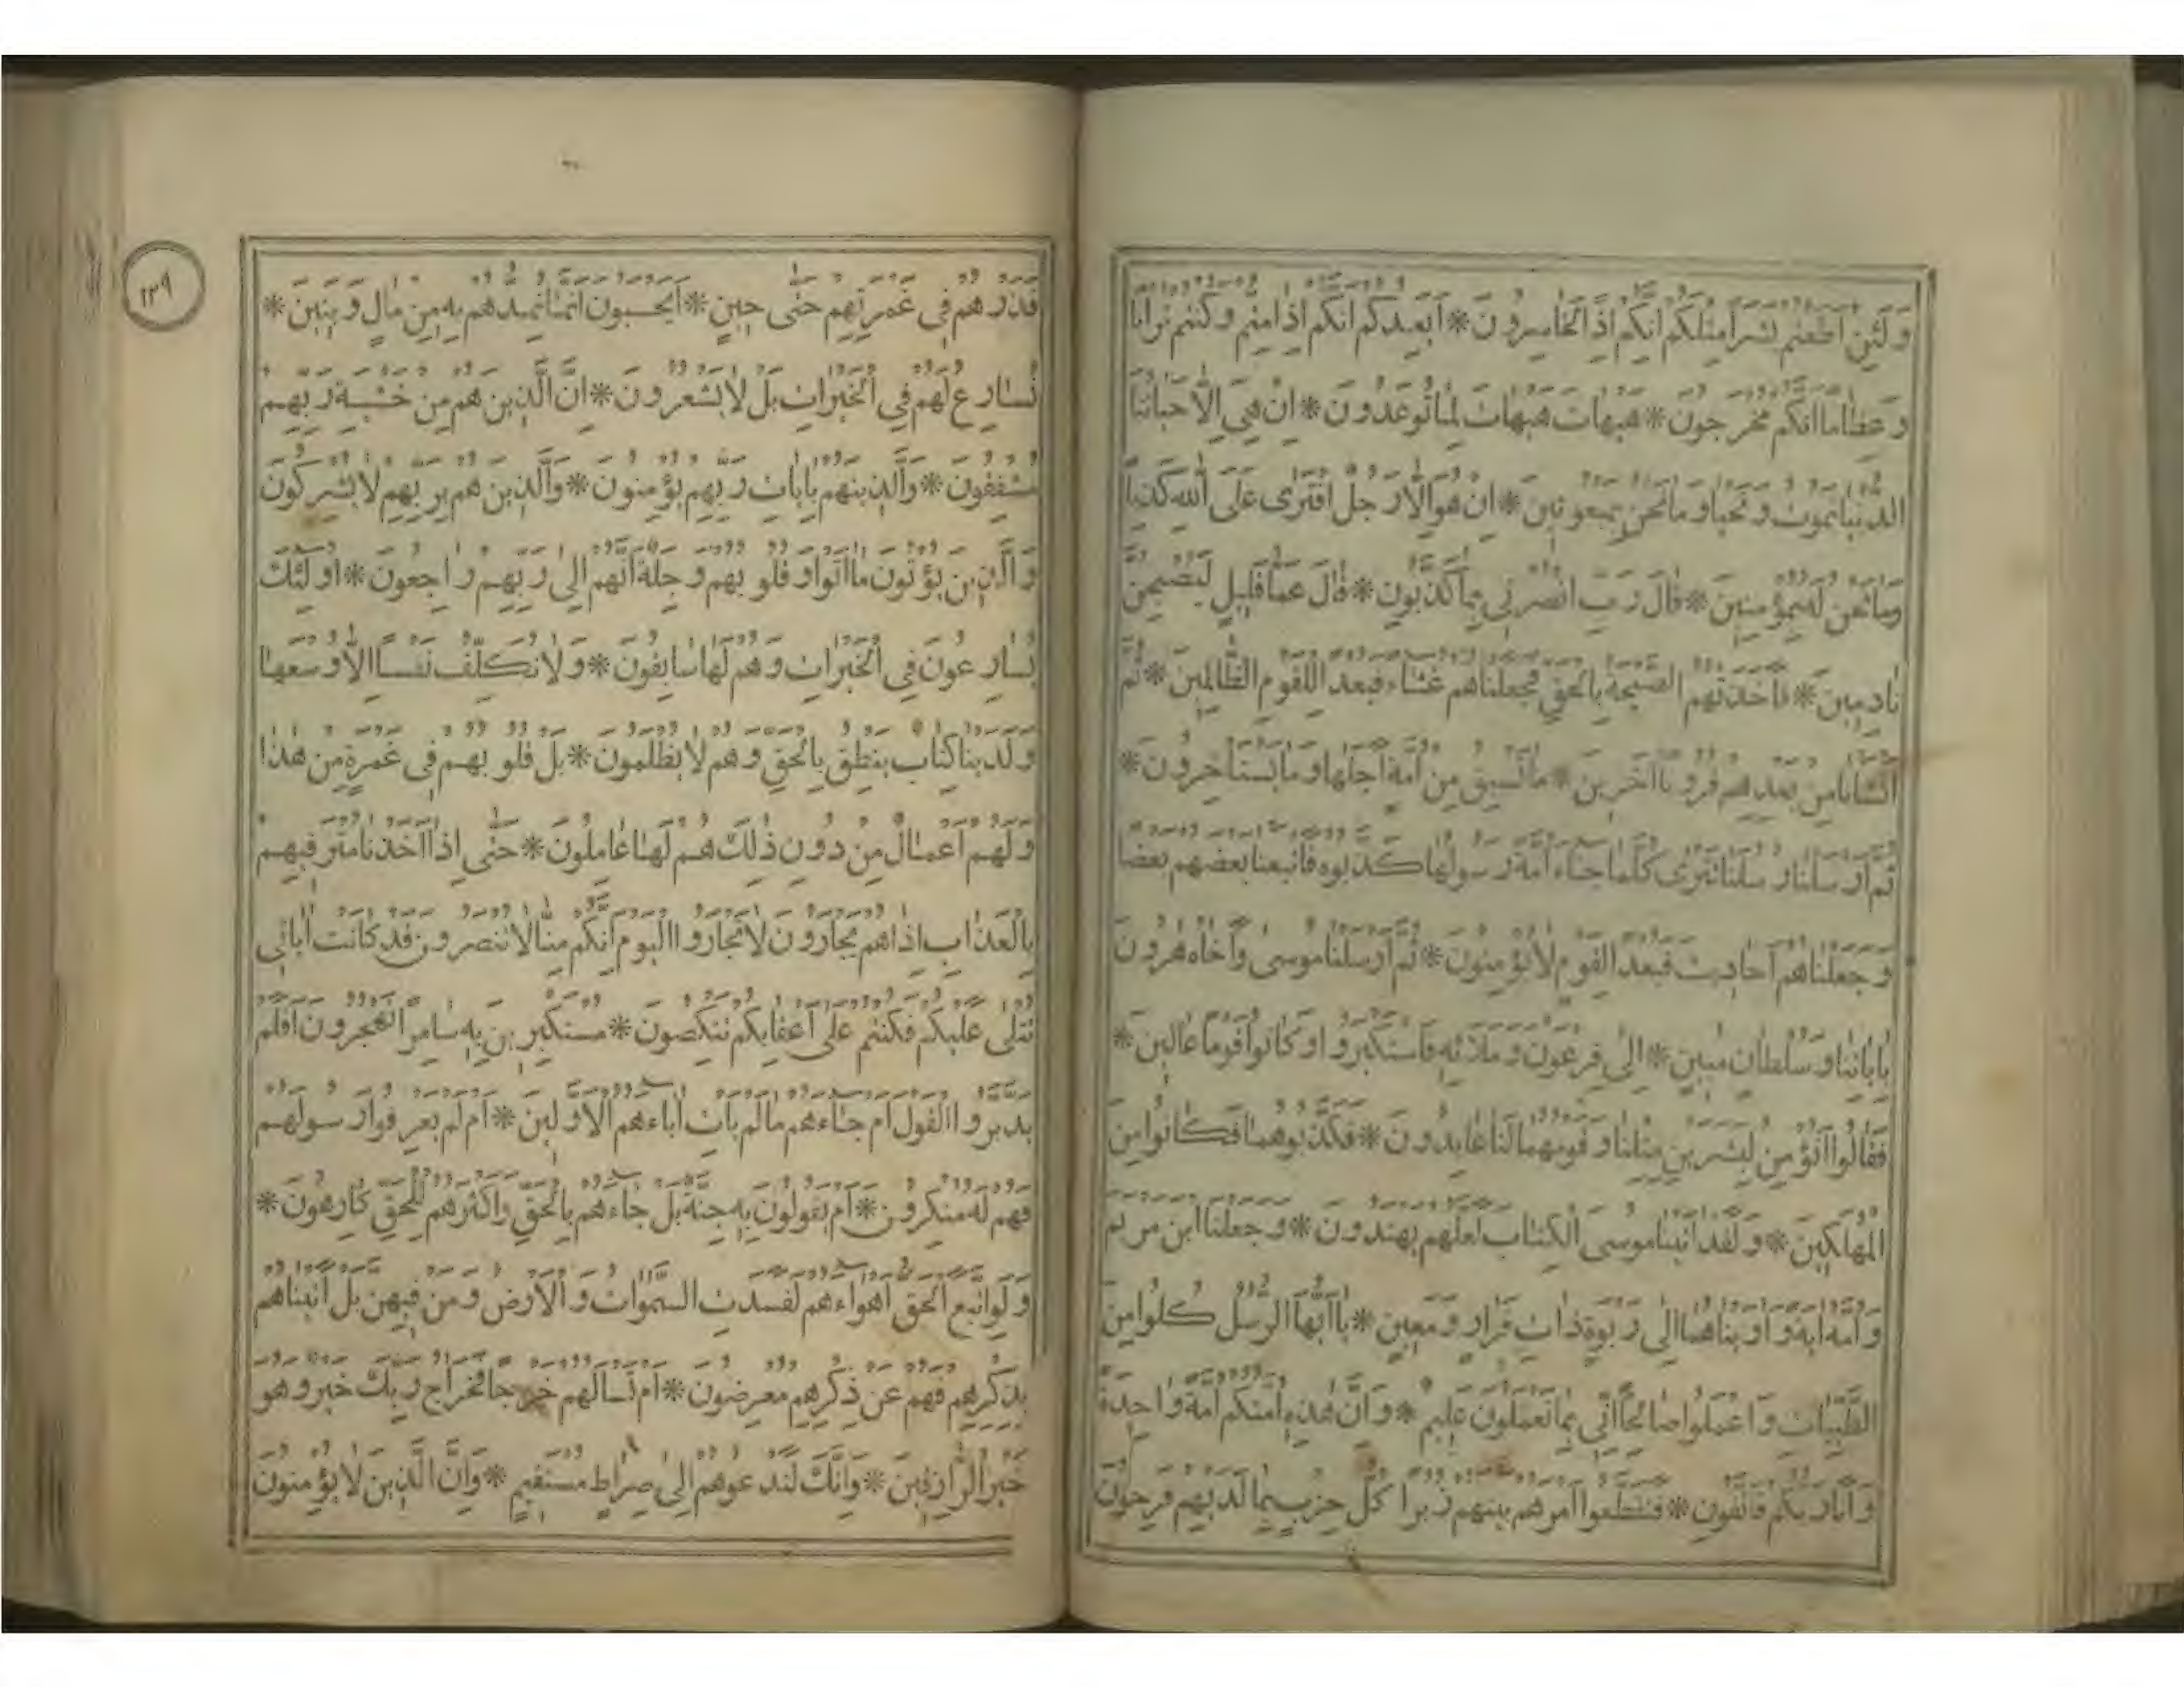 وَلَئِنْ اَطَعْتُمْ بَشَرًا مِثْلَكُمْ اِنَّكُمْ اِذًا لَخَاسِرُونَ * اَيَعِدُكُمْ اَنَّكُمْ اِذَا مِتُّمْ وَكُنْتُمْ تُرَابًا
وَعِظَامًا اَنَّكُمْ مُخْرَجُونَ * هَيْهَاتَ هَيْهَاتَ لِمَا تُوعَدُونَ * اِنْ هِيَ اِلَّا حَيَاتُنَا
الدُّنْيَا نَمُوتُ وَنَحْيَا وَمَا نَحْنُ بِمَبْعُوثِينَ * اِنْ هُوَ اِلَّا رَجُلٌ افْتَرٰى عَلَى اللّٰهِ كَذِبًا
وَمَا نَحْنُ لَهُ بِمُؤْمِنِينَ * قَالَ رَبِّ انْصُرْنِي بِمَا كَذَّبُونِ * قَالَ عَمَّا قَلِيلٍ لَيُصْبِحُنَّ
نَادِمِينَ * فَاَخَذَتْهُمُ الصَّيْحَةُ بِالْحَقِّ فَجَعَلْنَاهُمْ غُثَاءً فَبُعْدًا لِلْقَوْمِ الظَّالِمِينَ * ثُمَّ
اَنْشَاْنَا مِنْ بَعْدِهِمْ قُرُونًا اٰخَرِينَ * مَا تَسْبِقُ مِنْ اُمَّةٍ اَجَلَهَا وَمَا يَسْتَاْخِرُونَ *
ثُمَّ اَرْسَلْنَا رُسُلَنَا تَتْرٰى كُلَّمَا جَاءَ اُمَّةً رَسُولُهَا كَذَّبُوهُ فَاَتْبَعْنَا بَعْضَهُمْ بَعْضًا
وَجَعَلْنَاهُمْ اَحَادِيثَ فَبُعْدًا لِقَوْمٍ لَا يُؤْمِنُونَ * ثُمَّ اَرْسَلْنَا مُوسٰى وَاَخَاهُ هٰرُونَ
بِاٰيَاتِنَا وَسُلْطَانٍ مُبِينٍ * اِلٰى فِرْعَوْنَ وَمَلَائِهِ فَاسْتَكْبَرُوا وَكَانُوا قَوْمًا عَالِينَ *
فَقَالُوا اَنُؤْمِنُ لِبَشَرَيْنِ مِثْلِنَا وَقَوْمُهُمَا لَنَا عَابِدُونَ * فَكَذَّبُوهُمَا فَكَانُوا مِنَ
الْمُهْلَكِينَ * وَلَقَدْ اٰتَيْنَا مُوسَى الْكِتَابَ لَعَلَّهُمْ يَهْتَدُونَ * وَجَعَلْنَا ابْنَ مَرْيَمَ
وَاُمَّهُ اٰيَةً وَاٰوَيْنَاهُمَا اِلٰى رَبْوَةٍ ذَاتِ قَرَارٍ وَمَعِينٍ * يَا اَيُّهَا الرُّسُلُ كُلُوا مِنَ
الطَّيِّبَاتِ وَاعْمَلُوا صَالِحًا اِنِّي بِمَا تَعْمَلُونَ عَلِيمٌ * وَاِنَّ هٰذِهِ اُمَّتُكُمْ اُمَّةً وَاحِدَةً
وَاَنَا رَبُّكُمْ فَاتَّقُونِ * فَتَقَطَّعُوا اَمْرَهُمْ بَيْنَهُمْ زُبُرًا كُلُّ حِزْبٍ بِمَا لَدَيْهِمْ فَرِحُونَ
١٣٩
فَذَرْهُمْ فِي غَمْرَتِهِمْ حَتّٰى حِينٍ * اَيَحْسَبُونَ اَنَّمَا نُمِدُّهُمْ بِهِ مِنْ مَالٍ وَبَنِينَ *
نُسَارِعُ لَهُمْ فِي الْخَيْرَاتِ بَلْ لَا يَشْعُرُونَ * اِنَّ الَّذِينَ هُمْ مِنْ خَشْيَةِ رَبِّهِمْ
مُشْفِقُونَ * وَالَّذِينَ هُمْ بِاٰيَاتِ رَبِّهِمْ يُؤْمِنُونَ * وَالَّذِينَ هُمْ بِرَبِّهِمْ لَا يُشْرِكُونَ
وَالَّذِينَ يُؤْتُونَ مَا اٰتَوْا وَقُلُوبُهُمْ وَجِلَةٌ اَنَّهُمْ اِلٰى رَبِّهِمْ رَاجِعُونَ * اُولٰئِكَ
يُسَارِعُونَ فِي الْخَيْرَاتِ وَهُمْ لَهَا سَابِقُونَ * وَلَا نُكَلِّفُ نَفْسًا اِلَّا وُسْعَهَا
وَلَدَيْنَا كِتَابٌ يَنْطِقُ بِالْحَقِّ وَهُمْ لَا يُظْلَمُونَ * بَلْ قُلُوبُهُمْ فِي غَمْرَةٍ مِنْ هٰذَا
وَلَهُمْ اَعْمَالٌ مِنْ دُونِ ذٰلِكَ هُمْ لَهَا عَامِلُونَ * حَتّٰى اِذَا اَخَذْنَا مُتْرَفِيهِمْ
بِالْعَذَابِ اِذَا هُمْ يَجْاَرُونَ لَا تَجْاَرُوا الْيَوْمَ اِنَّكُمْ مِنَّا لَا تُنْصَرُونَ قَدْ كَانَتْ اٰيَاتِي
تُتْلٰى عَلَيْكُمْ فَكُنْتُمْ عَلٰى اَعْقَابِكُمْ تَنْكِصُونَ * مُسْتَكْبِرِينَ بِهِ سَامِرًا تَهْجُرُونَ اَفَلَمْ
يَدَّبَّرُوا الْقَوْلَ اَمْ جَاءَهُمْ مَا لَمْ يَاْتِ اٰبَاءَهُمُ الْاَوَّلِينَ * اَمْ لَمْ يَعْرِفُوا رَسُولَهُمْ
فَهُمْ لَهُ مُنْكِرُونَ * اَمْ يَقُولُونَ بِهِ جِنَّةٌ بَلْ جَاءَهُمْ بِالْحَقِّ وَاَكْثَرُهُمْ لِلْحَقِّ كَارِهُونَ *
وَلَوِ اتَّبَعَ الْحَقُّ اَهْوَاءَهُمْ لَفَسَدَتِ السَّمٰوَاتُ وَالْاَرْضُ وَمَنْ فِيهِنَّ بَلْ اَتَيْنَاهُمْ
بِذِكْرِهِمْ فَهُمْ عَنْ ذِكْرِهِمْ مُعْرِضُونَ * اَمْ تَسْاَلُهُمْ خَرْجًا فَخَرَاجُ رَبِّكَ خَيْرٌ وَهُوَ
خَيْرُ الرَّازِقِينَ * وَاِنَّكَ لَتَدْعُوهُمْ اِلٰى صِرَاطٍ مُسْتَقِيمٍ * وَاِنَّ الَّذِينَ لَا يُؤْمِنُونَ